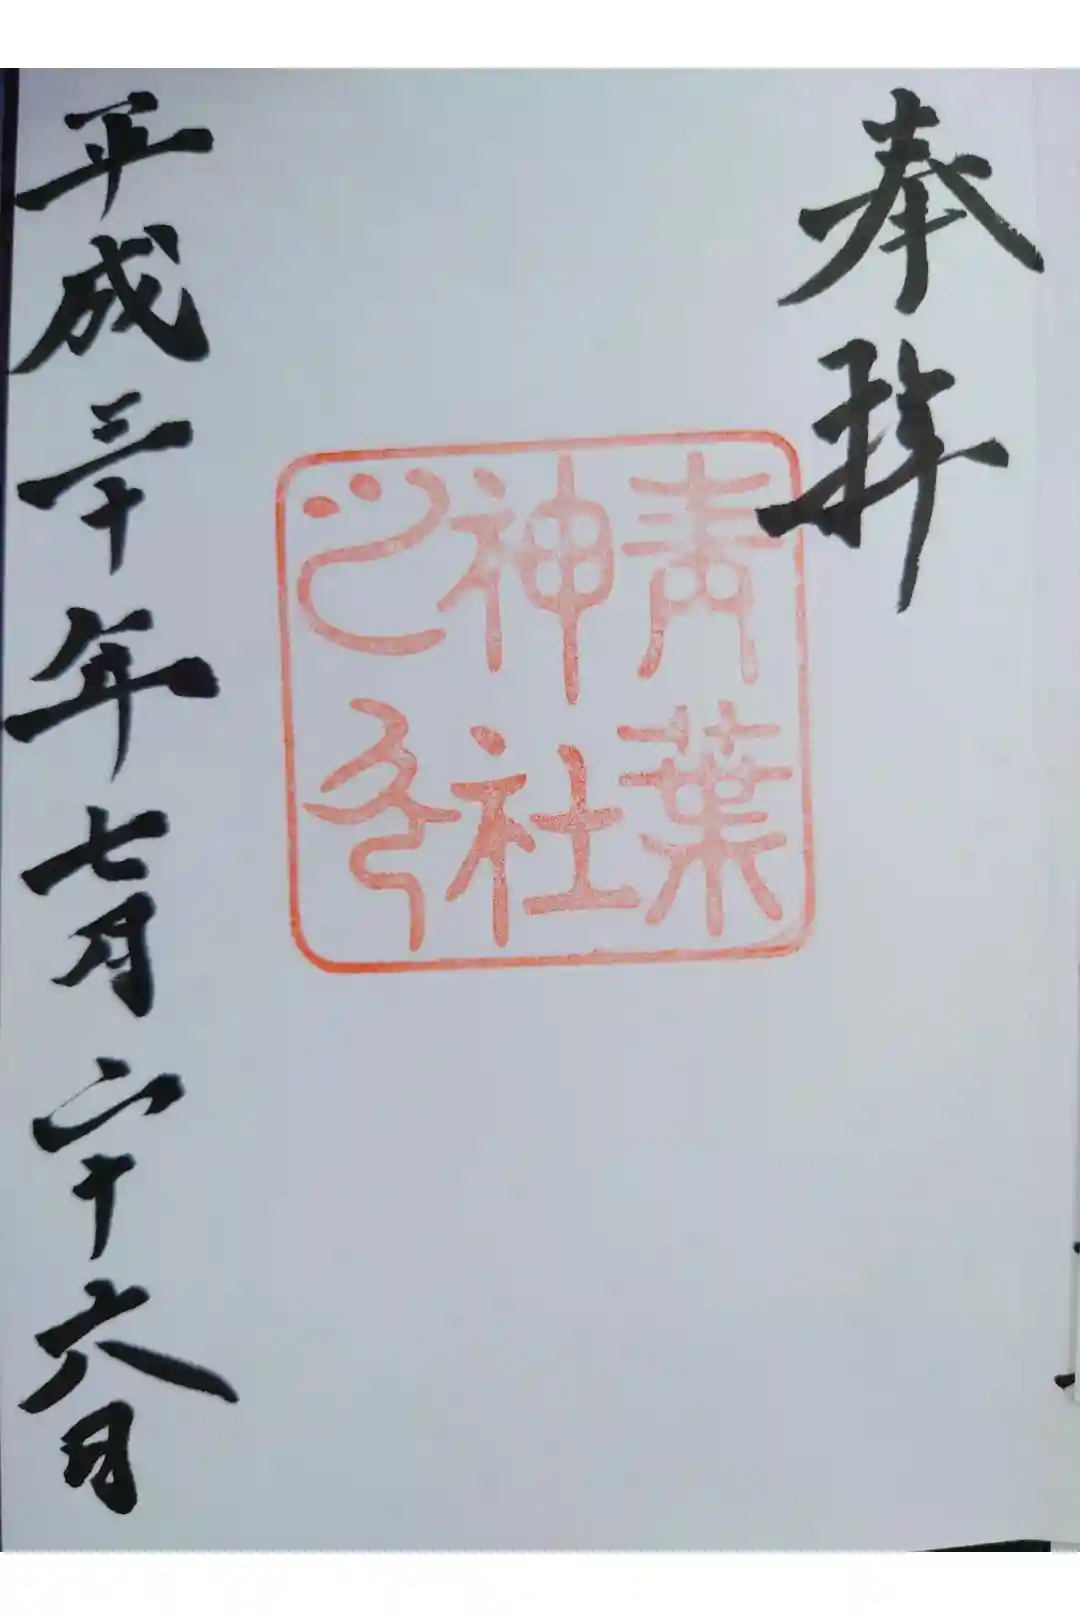 奉拝
青葉
神社
之印
平成三十年七月二十六日